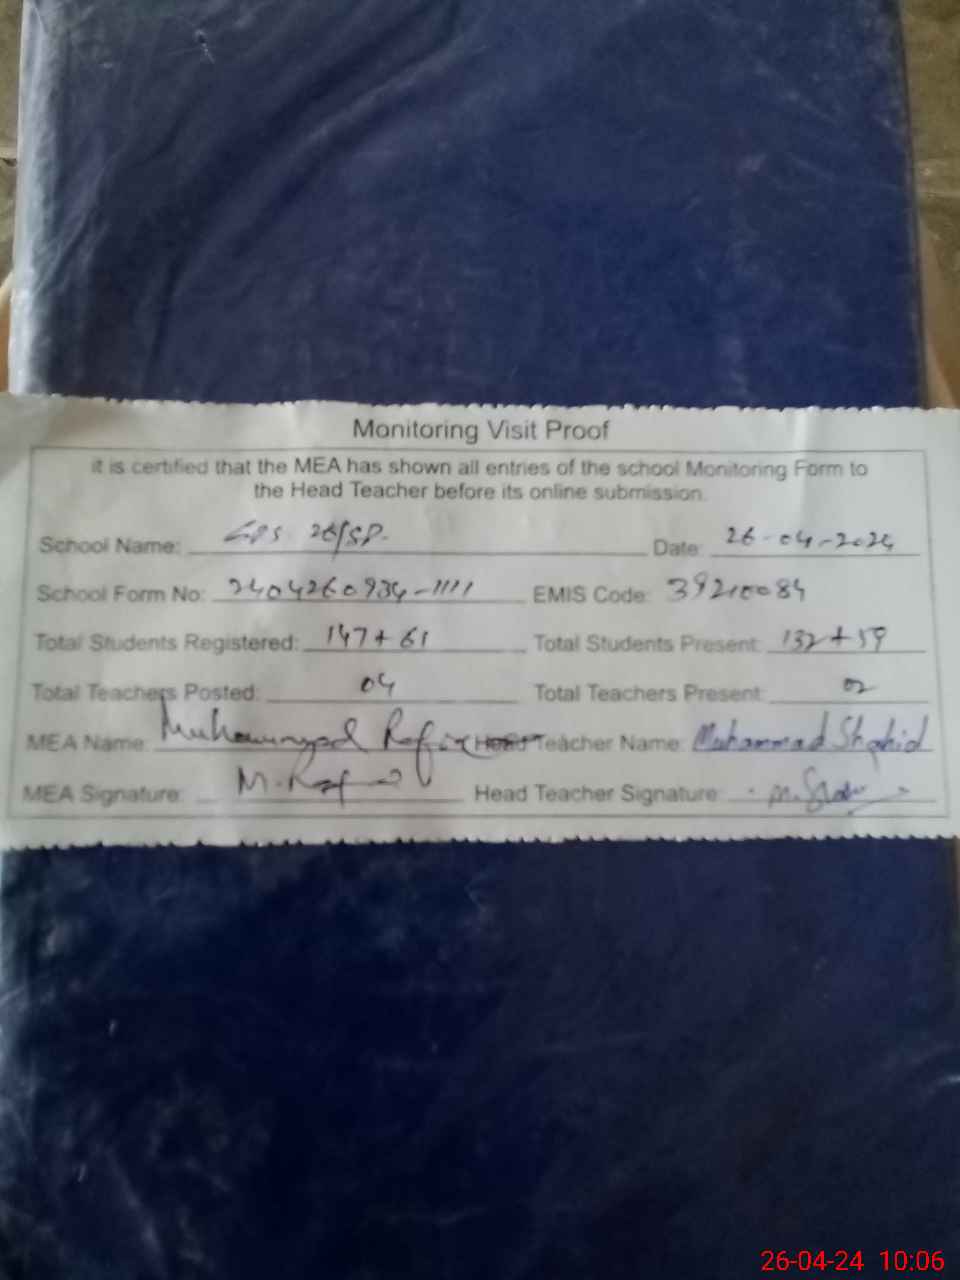 Monitoring Visit Proof
it is certified that the MEA has shown all entries of the school Monitoring Form to
the Head Teacher before its online submission.
School Name: GPS 26/SP. Date: 26-04-2024
School Form No: 2404260934-1111 EMIS Code: 39210084
Total Students Registered: 147+61 Total Students Present: 132+59
Total Teachers Posted: 04 Total Teachers Present: 02
MEA Name: Muhammad Rafiq Head Teacher Name: Muhammad Shahid
MEA Signature: M. Rafiq Head Teacher Signature:
26-04-24 10:06